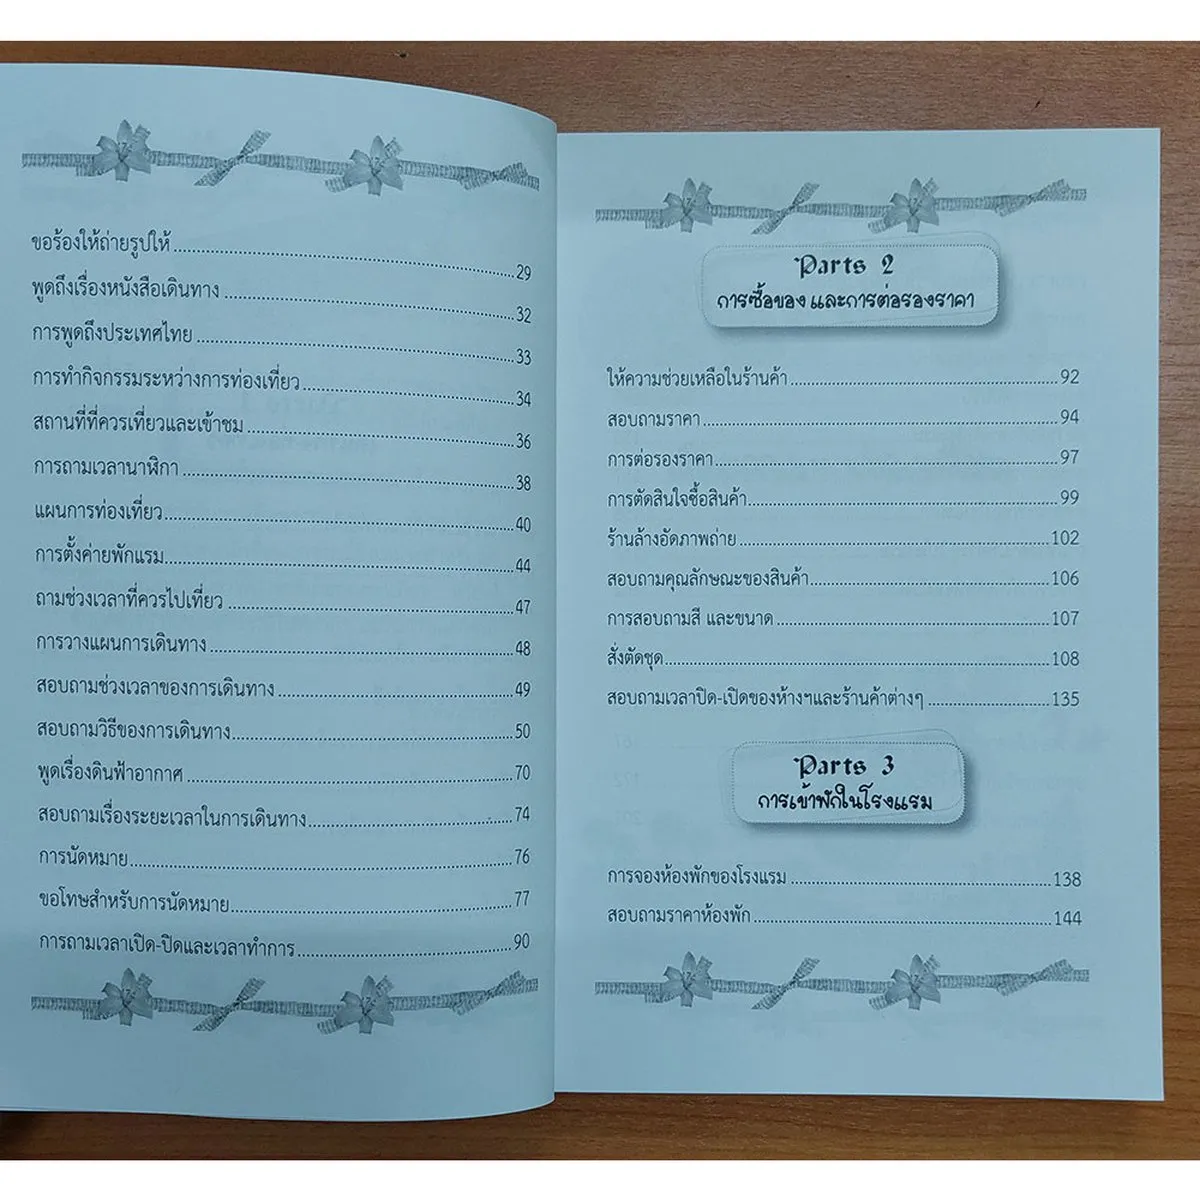 ขอร้องให้ถ่ายรูปให้ 29
พูดถึงเรื่องหนังสือเดินทาง 32
การพูดถึงประเทศไทย 33
การทำกิจกรรมระหว่างการท่องเที่ยว 34
สถานที่ที่ควรเที่ยวและเข้าชม 36
การถามเวลานาฬิกา 38
แผนการท่องเที่ยว 40
การตั้งค่ายพักแรม 44
ถามช่วงเวลาที่ควรไปเที่ยว 47
การวางแผนการเดินทาง 48
สอบถามช่วงเวลาของการเดินทาง 49
สอบถามวิธีของการเดินทาง 50
พูดเรื่องดินฟ้าอากาศ 70
สอบถามเรื่องระยะเวลาในการเดินทาง 74
การนัดหมาย 76
ขอโทษสำหรับการนัดหมาย 77
การถามเวลาเปิด-ปิดและเวลาทำการ 90
Parts 2
การซื้อของ และการต่อรองราคา
ให้ความช่วยเหลือในร้านค้า 92
สอบถามราคา 94
การต่อรองราคา 97
การตัดสินใจซื้อสินค้า 99
ร้านล้างอัดภาพถ่าย 102
สอบถามคุณลักษณะของสินค้า 106
การสอบถามสี และขนาด 107
สั่งตัดชุด 108
สอบถามเวลาปิด-เปิดของห้างฯและร้านค้าต่างๆ 135
Parts 3
การเข้าพักในโรงแรม
การจองห้องพักของโรงแรม 138
สอบถามราคาห้องพัก 144